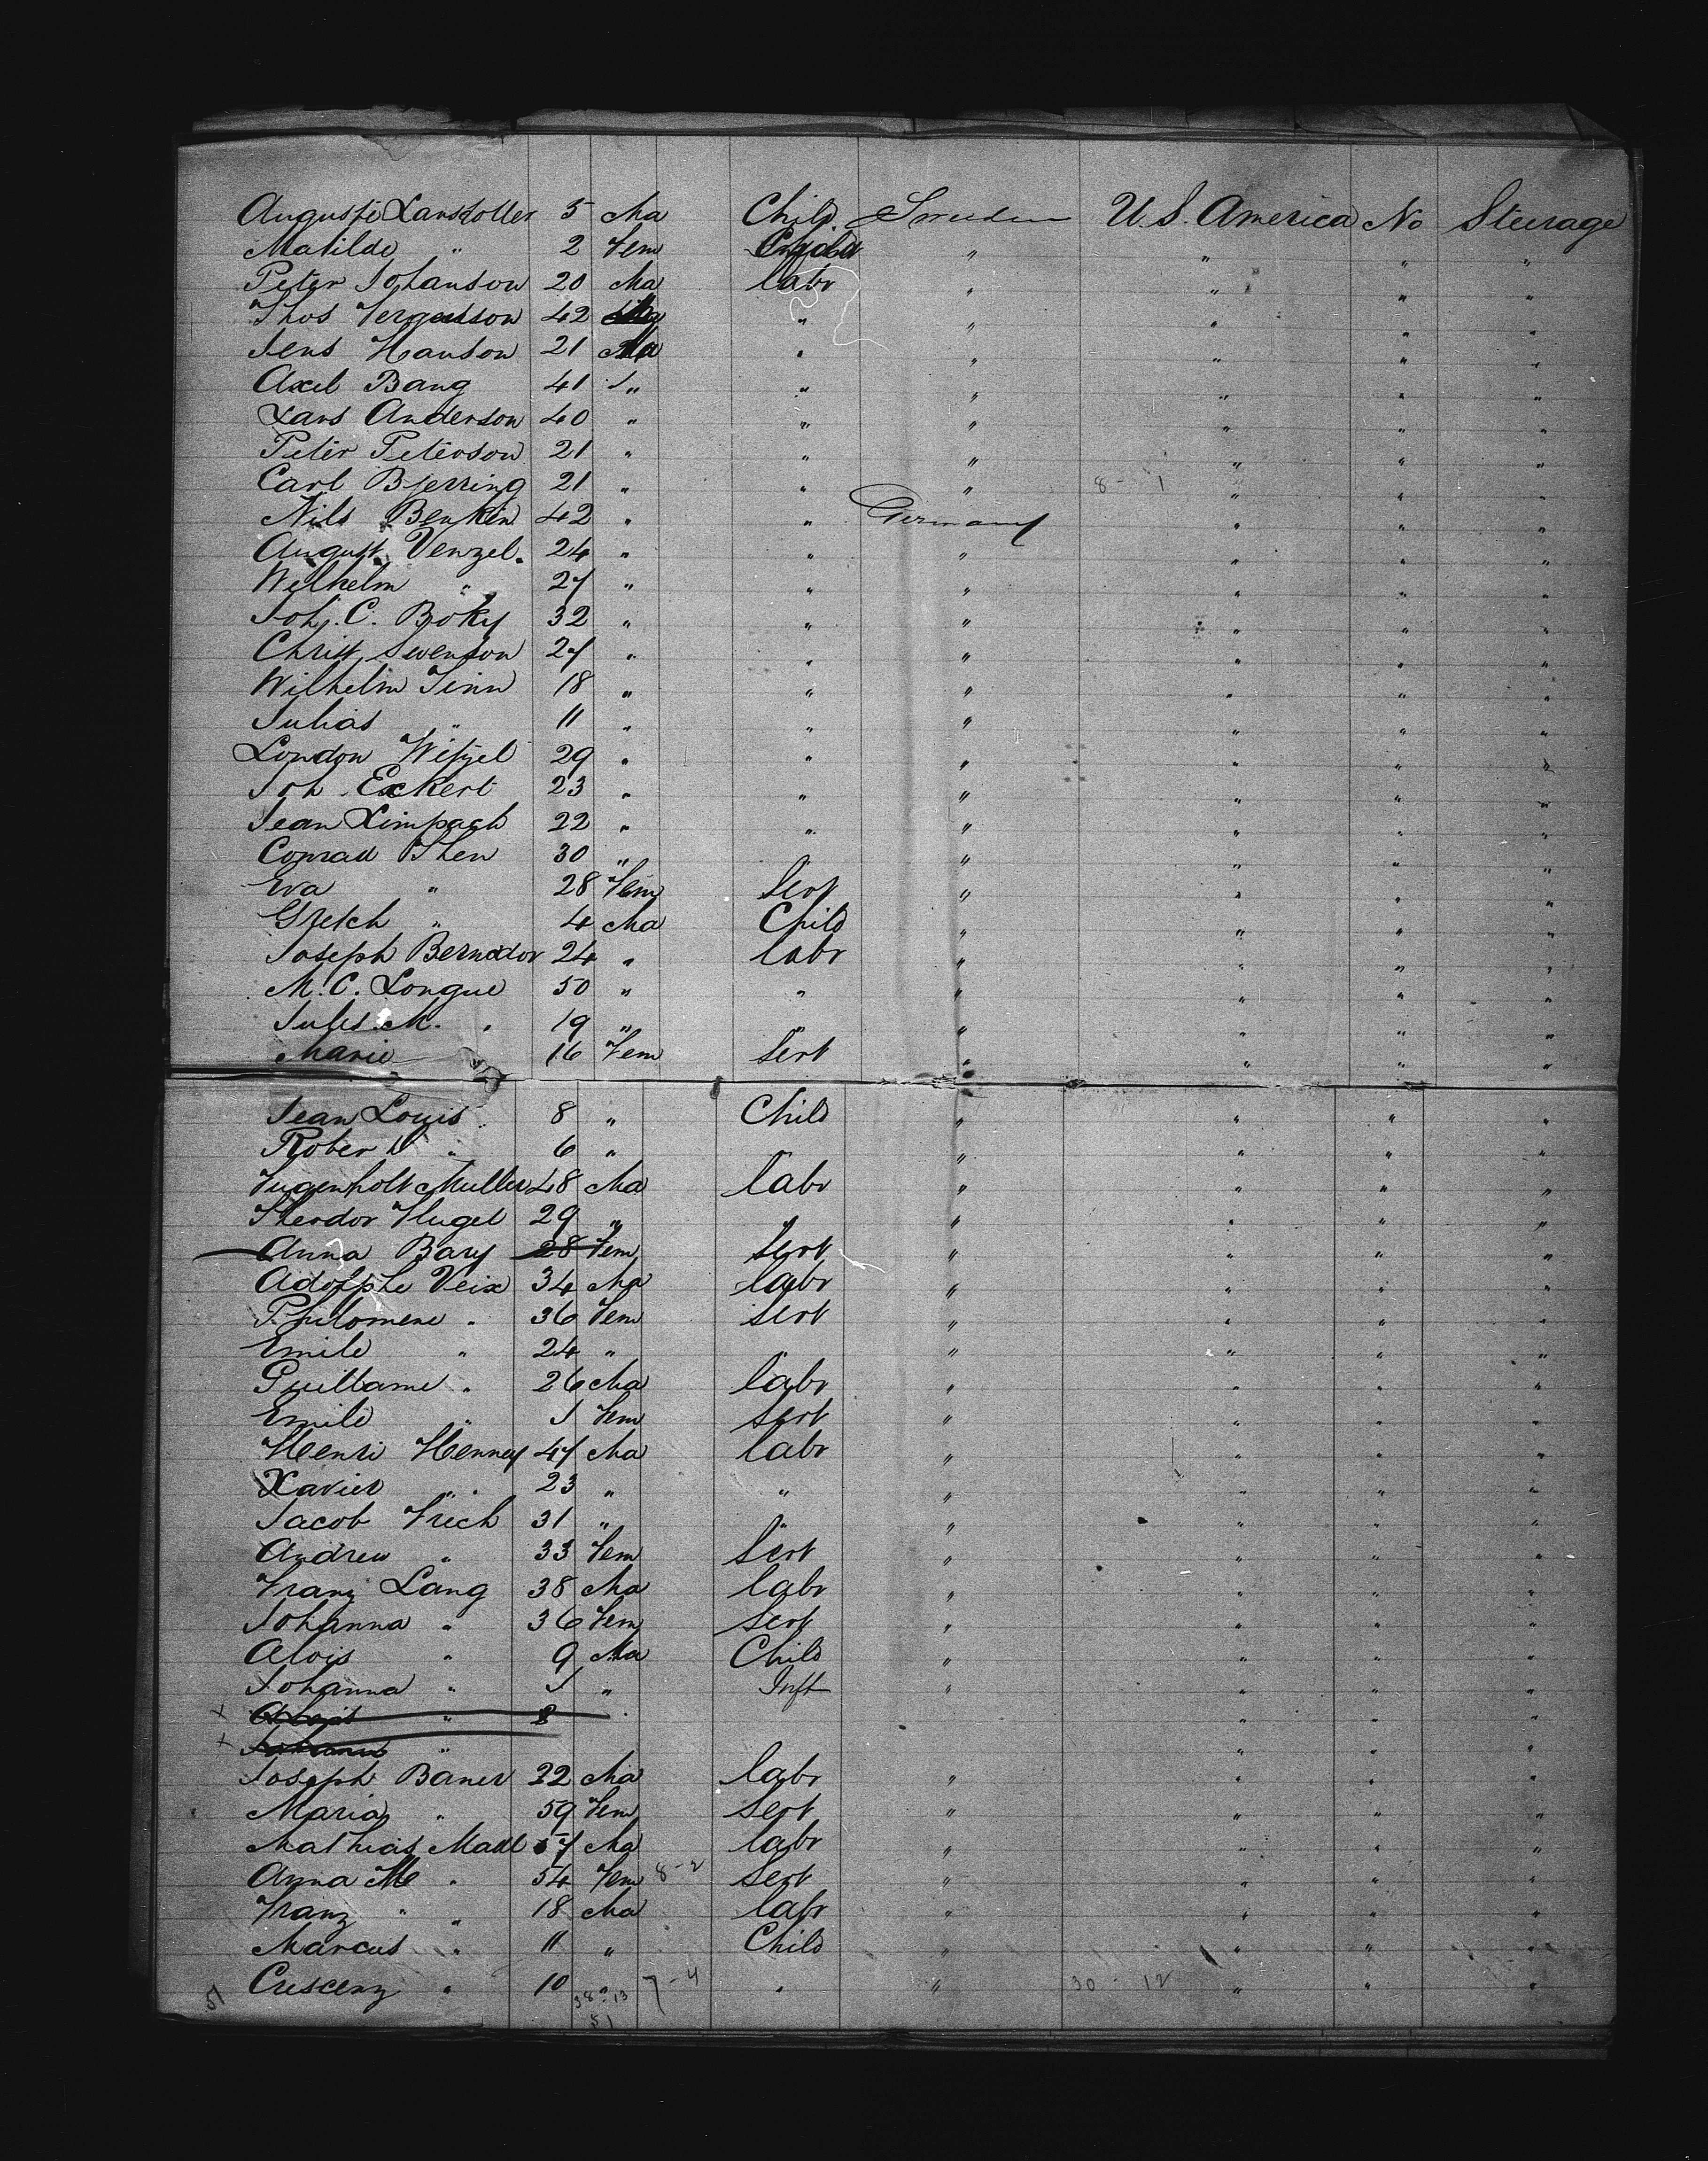 Auguste Larsdotter 5 Ma Child Sweeden U.S. America No Steerage
Matilde " 2 Fem Child " " " "
Peter Johanson 20 Ma labr " " " "
Thos Fergusson 42 Ma " " " " "
Jens Hanson 21 Ma " " " " "
Axel Bang 41 " " " " " "
Lars Anderson 40 " " " " " "
Peter Peterson 21 " " " " " "
Carl Bjerring 21 " " " 8 - 1 " " "
Nils Benken 42 " " Germany " " "
August Venzel 24 " " " " " "
Welhelm " 27 " " " " " "
Joh. C. Boky 32 " " " " " "
Christ Swenson 27 " " " " " "
Wilhelm Finn 18 " " " " " "
Julias " 11 " " " " " "
London Witzel 29 " " " " " "
Joh. Eckert 23 " " " " " "
Jean Limpach 22 " " " " " "
Conrad Then 30 " " " " "
Eva " 28 Fem Sert " " " "
Gretch " 4 Ma Child " " " "
Joseph Bernddor 24 " labr " " " "
M. C. Longue 50 " " " " " "
Jules M. " 19 " " " " " "
Marie 16 Fem Sert " " " "
Jean Louis 8 " Child " " " "
Robert " 6 " " " " " "
Fugenholt Muller 48 Ma labr " " " "
Theodor Flugel 29 " " " " " "
Anna Bary 28 Fem Sert " " " "
Adolphe Veix 34 Ma labr " " " "
Philomene " 36 Fem Sert " " " "
Emile " 24 " " " " " "
Guillame " 26 Ma labr " " " "
Emile " 1 Fem Sert " " " "
Henri Henney 47 Ma labr " " " "
Xavier " 23 " " " " " "
Jacob Frich 31 " " " " " "
Andrew " 33 Fem Sert " " " "
Franz Lang 38 Ma labr " " " "
Johanna " 36 Fem Sert " " " "
Alois " 9 Ma Child " " " "
Johanna " 1 " Inft " " " "
x Alois " 8 " " "
x " " " "
Joseph Baner 22 Ma labr " " " "
Maria " 59 Fem Sert " " " "
Mathias Madl 57 Ma labr " " " "
Anna M " 54 Fem 8-2 Sert " " " "
Franz " " 18 Ma labr " " " "
Marcus " 11 " Child " " " "
51 Crescenz " 10 " 7-4 " " 30 - 12 " " "
38 : 13
51